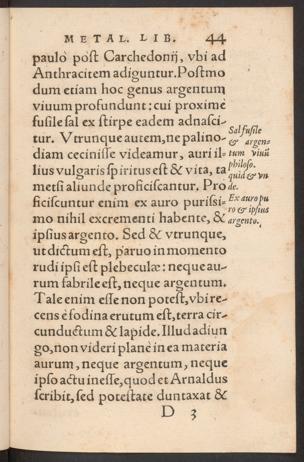 METAL. LIB. 44
paulò pòst Carchedonij, vbi ad
Anthracitem adiguntur. Postmo
dum etiam hoc genus argentum
viuum profundunt: cui proximè
fusile sal ex stirpe eadem adnasci-
tur. Vtrunque autem, ne palino-
diam cecinisse videamur, auri il-
lius vulgaris spiritus est & vita, ta
metsi aliunde proficiscantur. Pro
ficiscuntur enim ex auro purissi-
mo nihil excrementi habente, &
ipsius argento. Sed & vtrunque,
ut dictum est, paruo in momento
rudi ipsi est plebeculæ: neque au-
rum fabrile est, neque argentum.
Tale enim esse non potest, vbi re-
cens è fodina erutum est, terra cir-
cunductum & lapide. Illud adiun
go, non videri planè in ea materia
aurum, neque argentum, neque
ipso actu inesse, quod et Arnaldus
scribit, sed potestate duntaxat &
D 3
Sal fusile
& argen-
tum viuũ
philoso.
quid & vn
de.
Ex auro pu
ro & ipsius
argento.